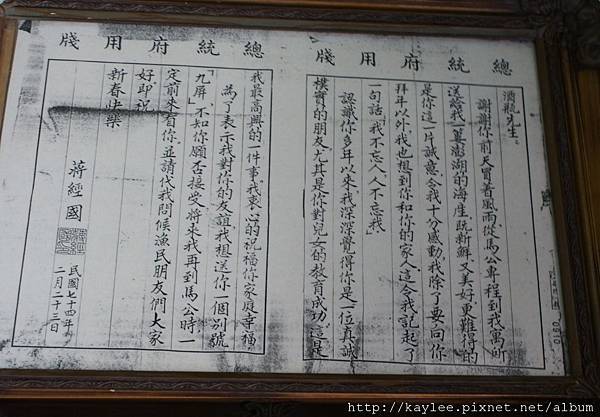 總統府用牋
酒瓶先生:
謝謝你前天冒着風雨從馬公專程到我寓所
送給我一簍澎湖的海產既新鮮又美好更難得的
是你這一片誠意令我十分感動我除了要向你
拜年以外我也想到你和你的家人這令我記起了
一句話「我不忘人人不忘我」
認識你多年以來我深深覺得你是一位真誠
樸實的朋友尤其是你對兒女的教育成功這是
總統府用牋
我最高興的一件事我衷心的祝福你家庭幸福
為了表示我對你的友誼我想送你一個別號
「九屏」不知你願否接受將來我再到馬公時一
定前來看你並請代我問候漁民朋友們大家
好即祝
新春快樂
蔣經國
民國七十四年
二月二十三日
http://kaylee.pixnet.net/album